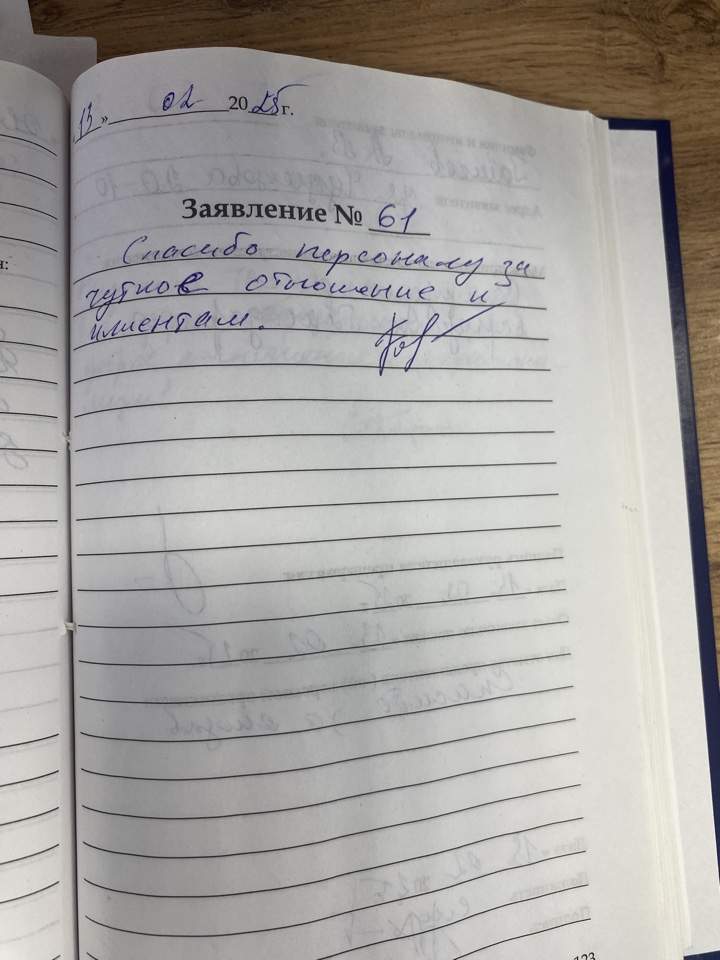 13 » 02 2025 г.
Заявление № 61
Спасибо персоналу за
чуткое отношение к
клиентам.
123